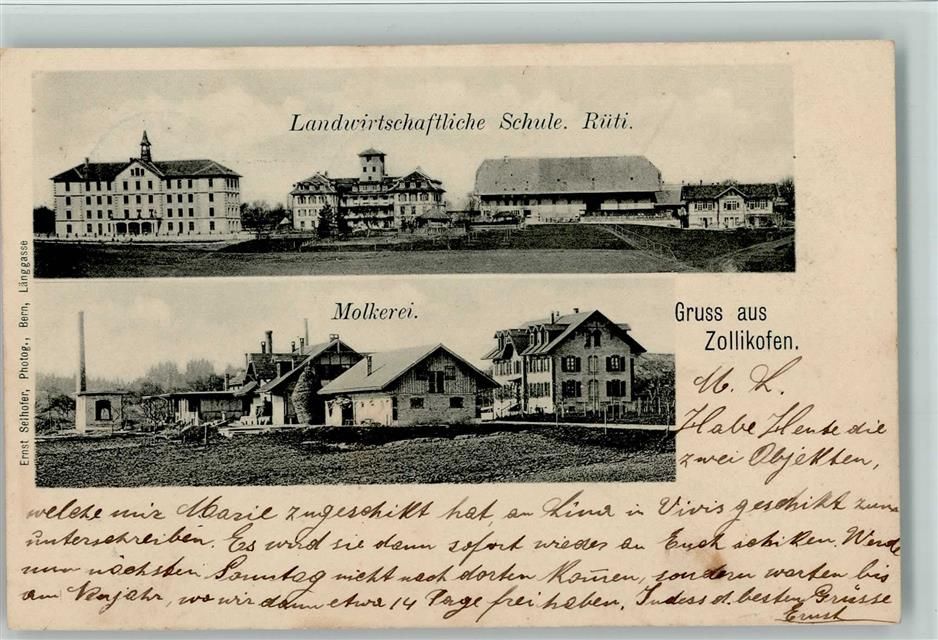 Landwirtschaftliche Schule. Rüti.
Molkerei.
Gruss aus
Zollikofen.
Ernst Selhofer, Photog., Bern, Länggasse
M. L.
Habe Heute die
zwei Objekten,
welche mir Marie zugeschikt hat, an Lina in Vivis geschikt zum
unterschreiben. Es wird sie dann sofort wieder an Euch schiken. Werde
nun nächsten Sonntag nicht nach dorten kom̄en, sondern warten bis
am Neujahr, wo wir dann etwa 14 Tage frei haben. Indess d. besten Grüsse
Ernst